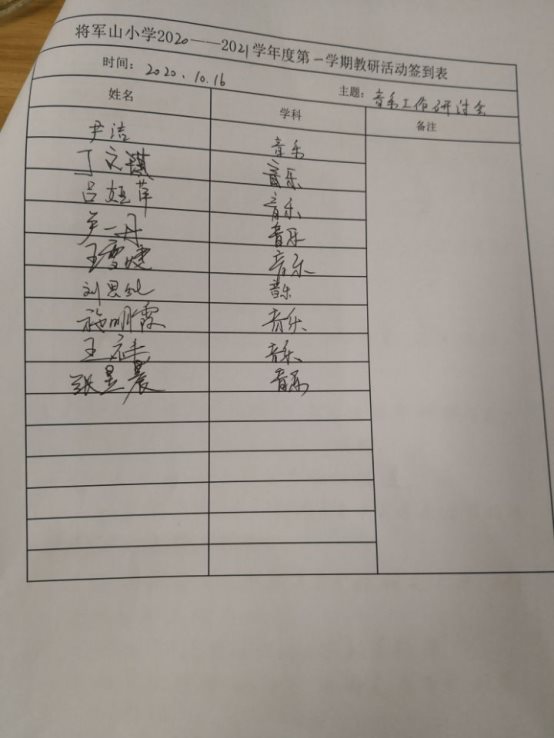 将军山小学2020——2021学年度第一学期教研活动签到表
时间：2020.10.16 主题：音乐工作研讨会
姓名 学科 备注
尹洁 音乐
丁文琪 音乐
吕姮苹 音乐
尹一丹 音乐
王雪婕 音乐
刘思纯 音乐
施明霞 音乐
王 音乐
张昱晨 音乐